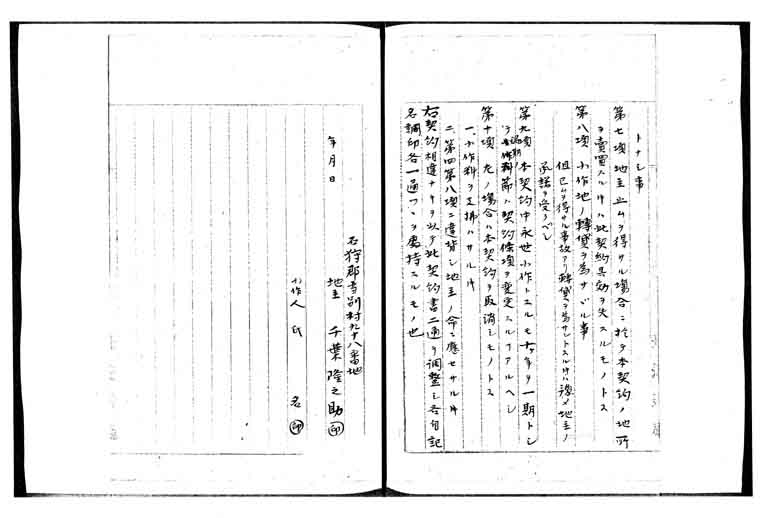 トナシ事
第七項 地主止ムヲ得サル場合ニ於テ本契約ノ地所
ヲ賣買スル時ハ此契約其効ヲ失スルモノトス
第八項 小作地ノ轉貸ヲ為サヾル事
但已ムヲ得サル事故アリ轉貸ヲ為サントスル時ハ豫メ地主ノ
承諾ヲ受クベシ
第九項 本契約中永世小作トスルモ ヶ年ヲ一期トシ
満期ノ節ハ契約條項ヲ変更スルヿアルヘシ
第十項 左ノ場合ハ本契約ヲ取消シモノトス
一、小作料ヲ支拂ハサル時
二、第四第八項ニ違背シ地主ノ命ニ應セサル時
右契約相違ナキヲ以テ此契約書二通ヲ調整シ各自記
名調印各一通ツヽヲ所持スルモノ也
年月日
石狩郡當別村九十八番地
地主 千葉隆之助 印
小作人 氏 名 印